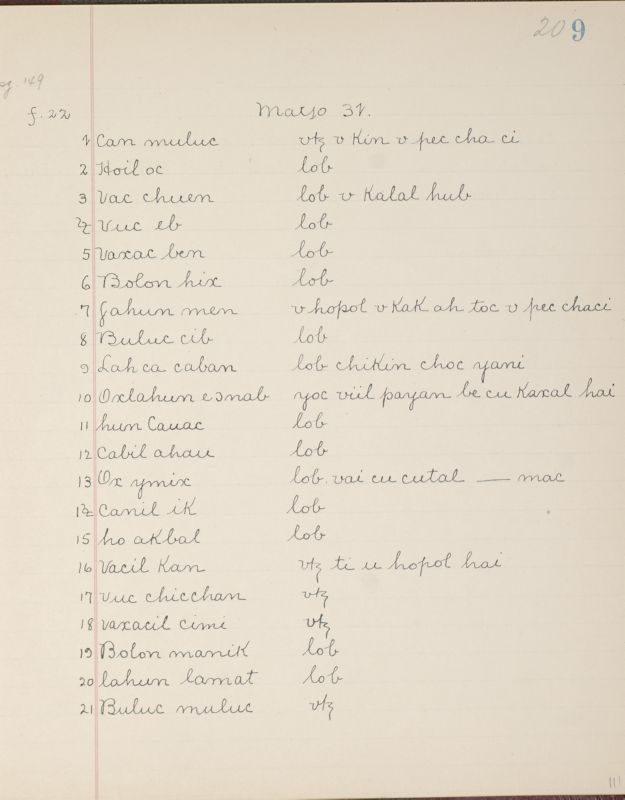 20 9
pg. 149
f. 22 Marso 31.
1 Can muluc utz v Kin v pec cha ci
2 Hoil oc lob
3 Vac chuen lob v Kalal hub
4 Vuc eb lob
5 Vaxac ben lob
6 Bolon hix lob
7 Lahun men v hopol v KaK ah toc v pec chaci
8 Buluc cib lob
9 Lah ca caban lob chiKin choc yani
10 Oxlahun eɔnab yoc viil payan be cu Kaxal hai
11 hun Cauac lob
12 Cabil ahau lob
13 Ox ymix lob. vai cu cutal —— mac
14 Canil iK lob
15 ho aKbal lob
16 Vacil Kan vtz ti u hopol hai
17 vuc chicchan vtz
18 vaxacil cimi vtz
19 Bolon maniK lob
20 lahun lamat lob
21 Buluc muluc vtz